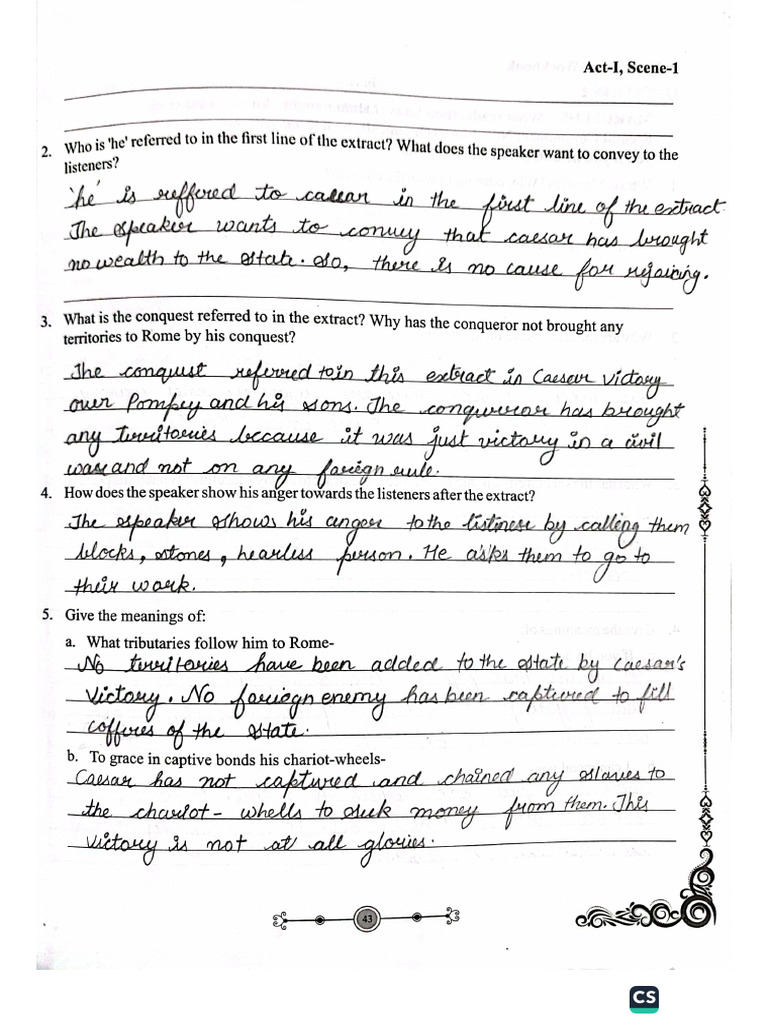 Act-I, Scene-1
2. Who is 'he' referred to in the first line of the extract? What does the speaker want to convey to the
listeners?
'he' is reffered to caesar in the first line of the extract.
The speaker wants to convey that caesar has brought
no wealth to the state. so, there is no cause for rejoicing.
3. What is the conquest referred to in the extract? Why has the conqueror not brought any
territories to Rome by his conquest?
The conquest referred to in this extract in Caesar victory
over Pompey and his sons. The conquerror has brought
any territories because it was just victory in a civil
war and not on any foreign rule.
4. How does the speaker show his anger towards the listeners after the extract?
The speaker shows his anger to the listinese by calling them
blocks, stones, hearless person. He asks them to go to
their work.
5. Give the meanings of:
a. What tributaries follow him to Rome-
No territories have been added to the state by Caesar's
victory. No foriegn enemy has been captured to fill
coffores of the state.
b. To grace in captive bonds his chariot-wheels-
Caesar has not captured and chained any slaves to
the chariot- whells to suck money from them. This
victory is not at all glories.
43
CS